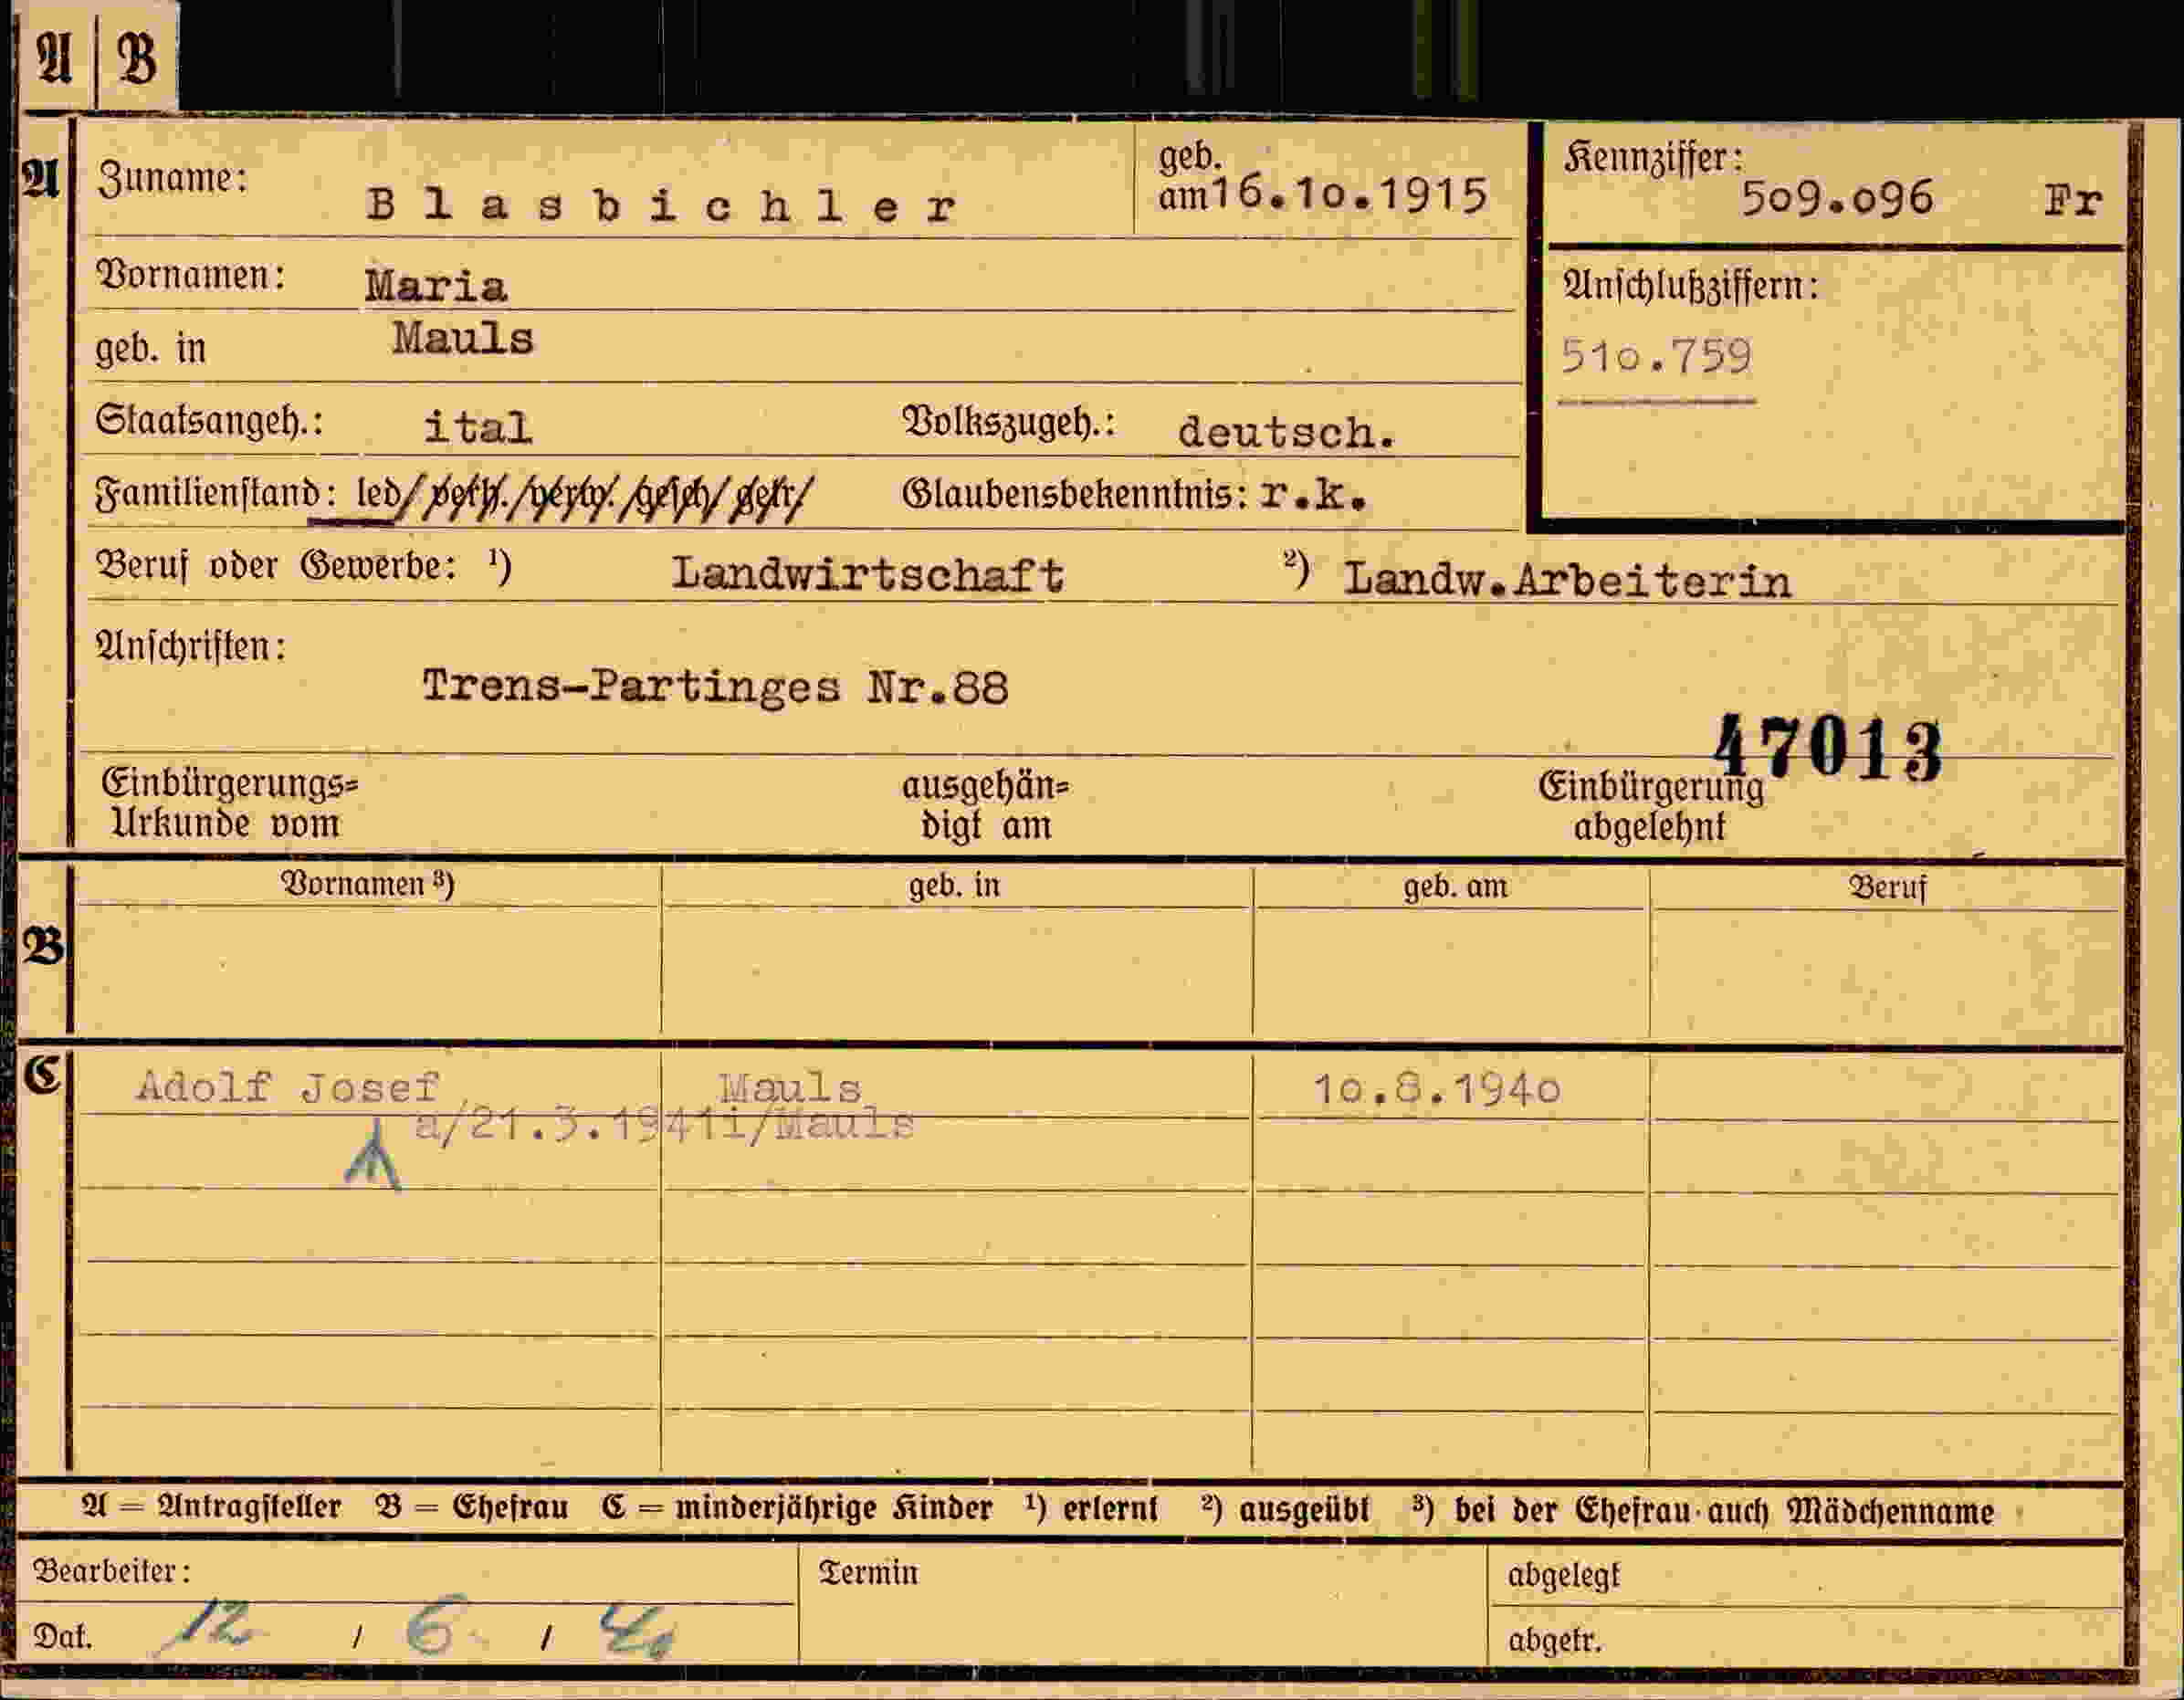 A B
A Zuname: Blasbichler geb. am 16.10.1915 Kennziffer: 509.096 Fr
Vornamen: Maria Anschlußziffern:
geb. in Mauls 510.759
Staatsangeh.: ital Volkszugeh.: deutsch.
Familienstand: led/ verh./verw./gesch/ getr/ Glaubensbekenntnis: r.k.
Beruf oder Gewerbe: ¹) Landwirtschaft ²) Landw.Arbeiterin
Anschriften:
Trens-Partinges Nr.88
47013
Einbürgerungs= ausgehän= Einbürgerung
Urkunde vom digt am abgelehnt
Vornamen ³) geb. in geb. am Beruf
B
C Adolf Josef Mauls 10.8.1940
a/21.3.1941i/Mauls
A = Antragsteller B = Ehefrau C = minderjährige Kinder ¹) erlernt ²) ausgeübt ³) bei der Ehefrau auch Mädchenname
Bearbeiter: Termin abgelegt
Dat. 12 / 6. / 40 abgetr.